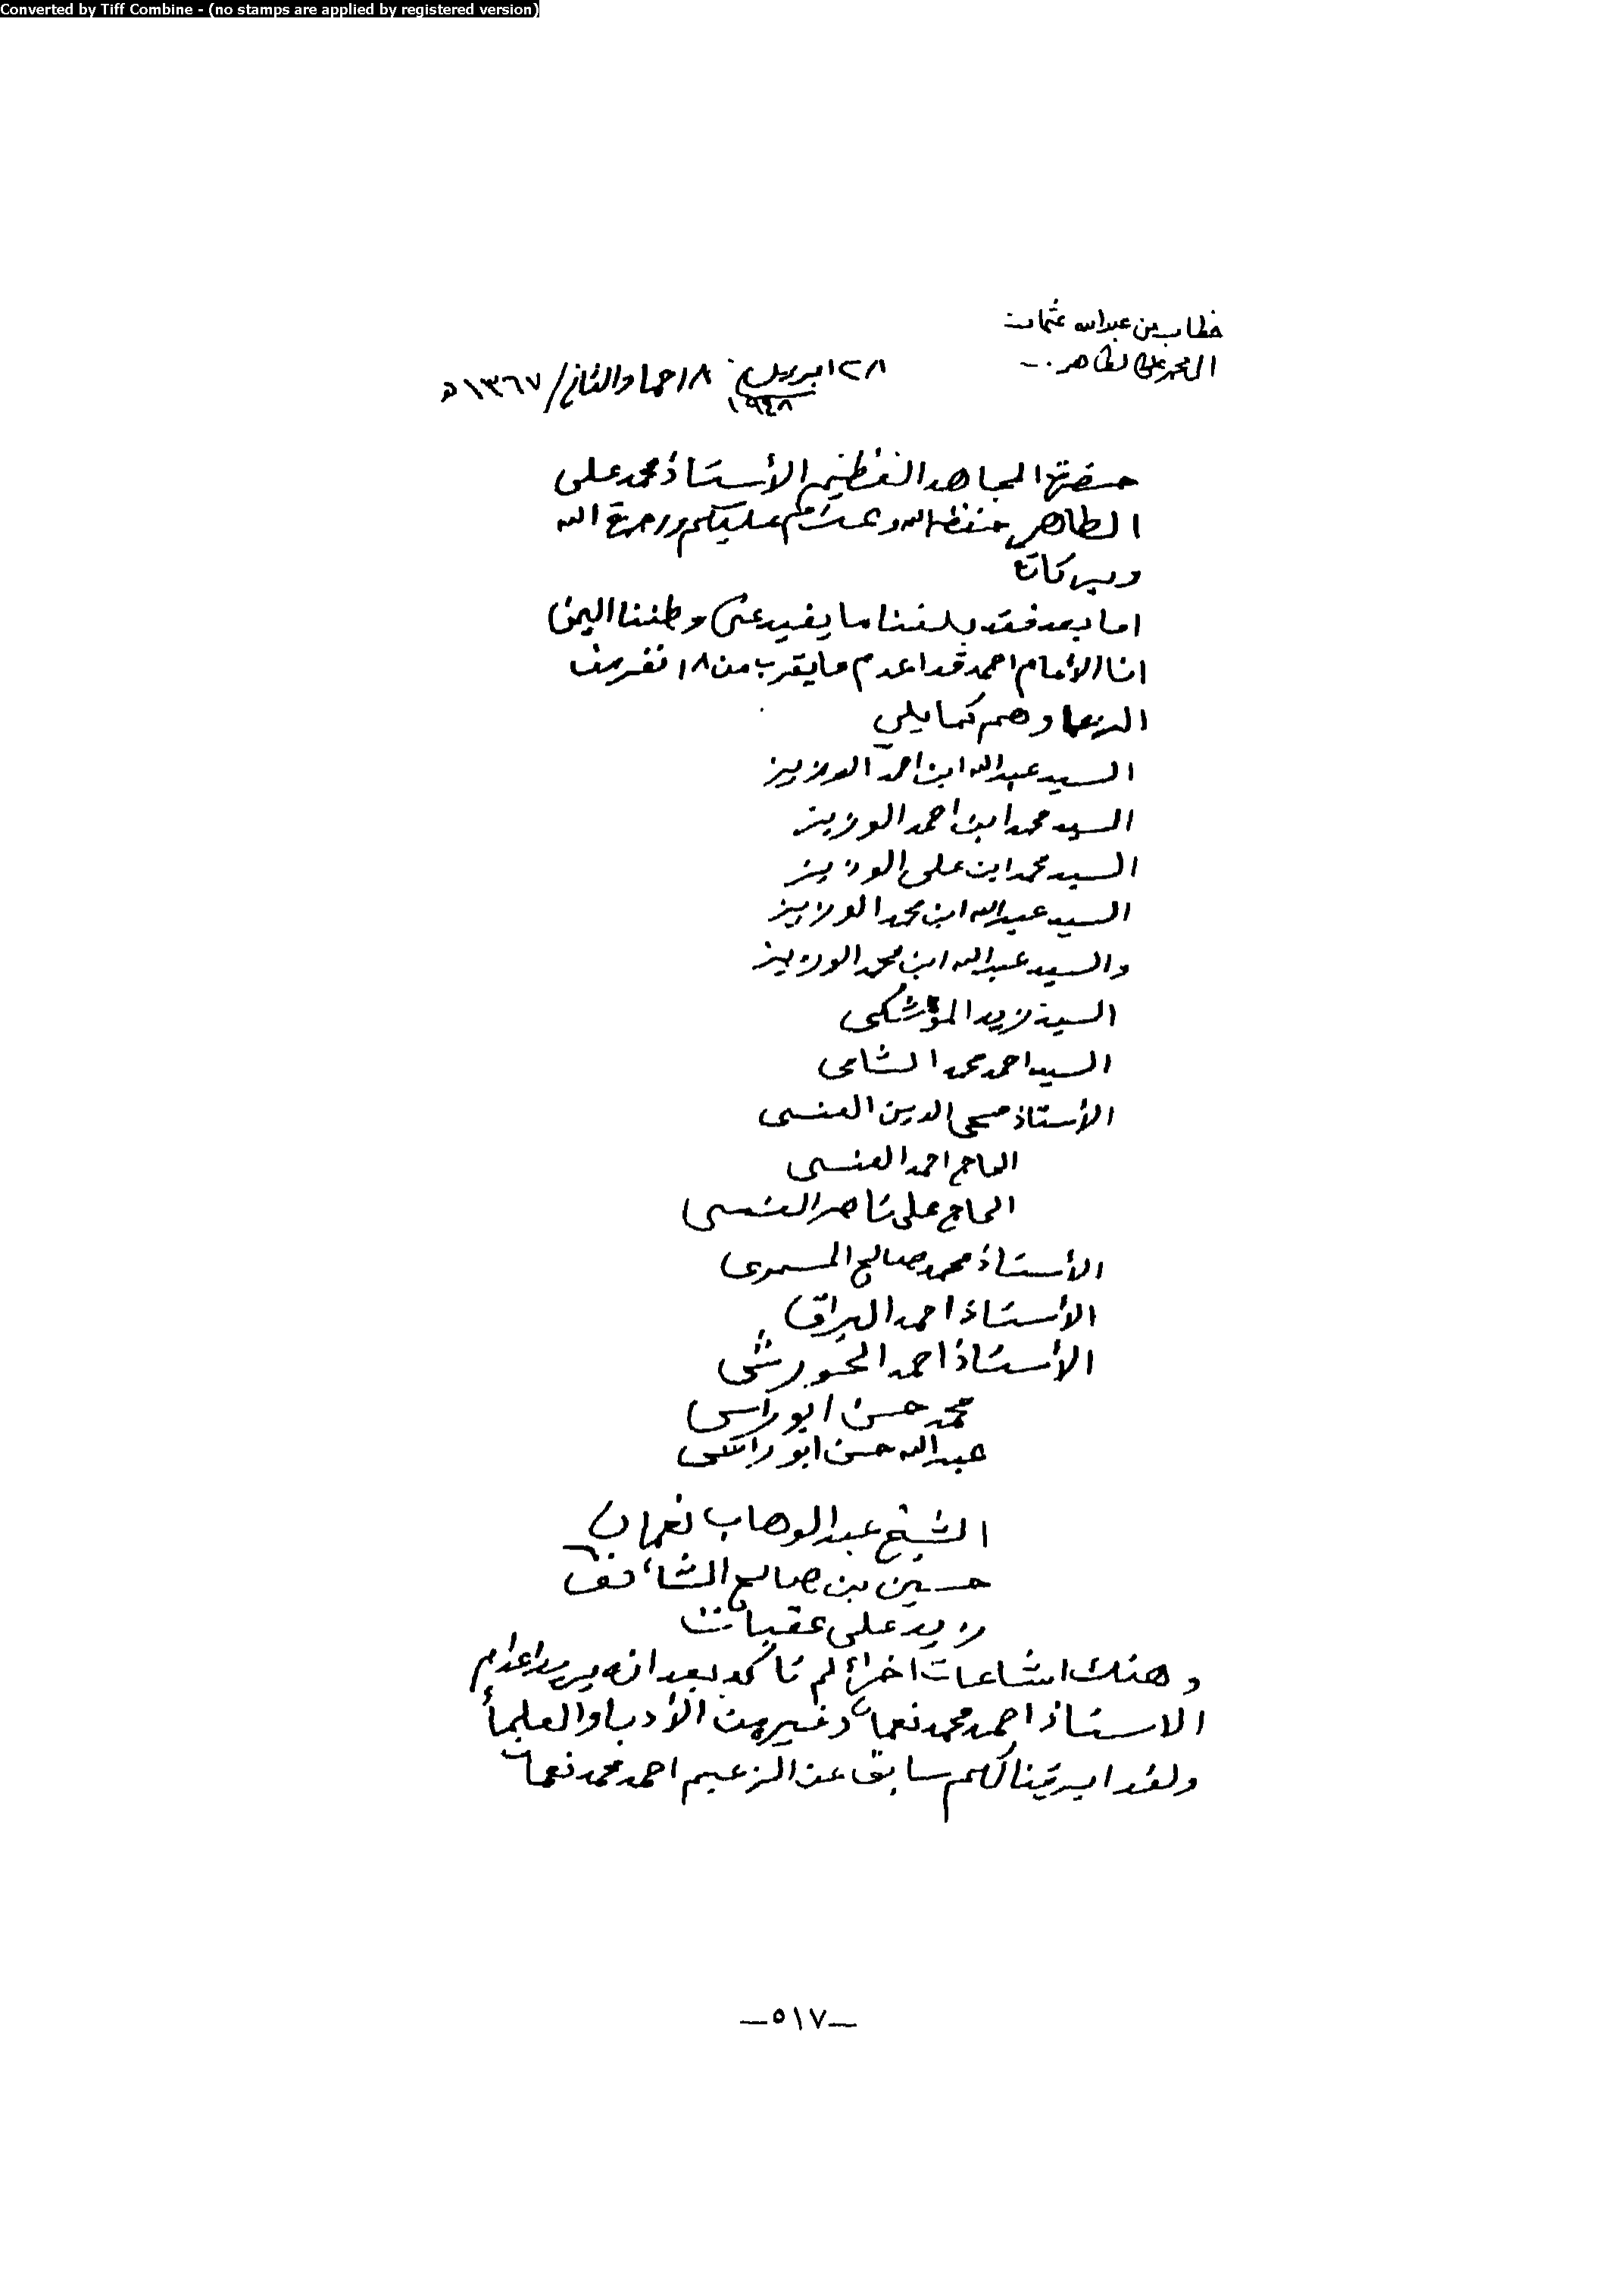 Converted by Tiff Combine - (no stamps are applied by registered version)
خطاب من عبدالله عثمان
الى محمد علي الطاهر.-
٢٨ ابريل ١٨ جماد الثاني / ١٣٦٧ه
١٩٤٨
حضرة المجاهد العظيم الأستاذ محمد على
الطاهر حفظه الله وعليكم ورحمة الله
وبركاته
اما بعد فقد بلغنا ما يفيد عن وطننا اليمن
ان الأمام احمد قد اعدم ما يقرب من ١٨ نفر من
وهم كما يلي
السيد عبدالله ابن احمد الوزيز
السيد محمد ابن احمد الوزيز
السيد محمد ابن على الوزيز
السيد عبدالله ابن محمد الوزيز
والسيد عبدالله ابن محمد الوزيز
السيد زيد الموشكى
السيد احمد محمد الشامى
الأستاذ محى الدين العنسى
الحاج احمد العنسى
الحاج على ناصر العنسى
الأستاذ محمد صالح المسمرى
الأستاذ احمد البراق
الأستاذ احمد الحورشى
محمد حسن ابو راسى
عبدالله حسن ابو راسى
الشيخ عبدالوهاب نعمان
حسين بن صالح الشائف
زيد على عقبات
وهنك اشاعات اخرئ لم تأكد بعد انه يريد اعدام
الاستاذ احمد محمد نعمان وغيره من الأدبا والعلمأ
ولقد ابرقنا لكم سابق عن الزعيم احمد محمد نعمان
—٥١٧—